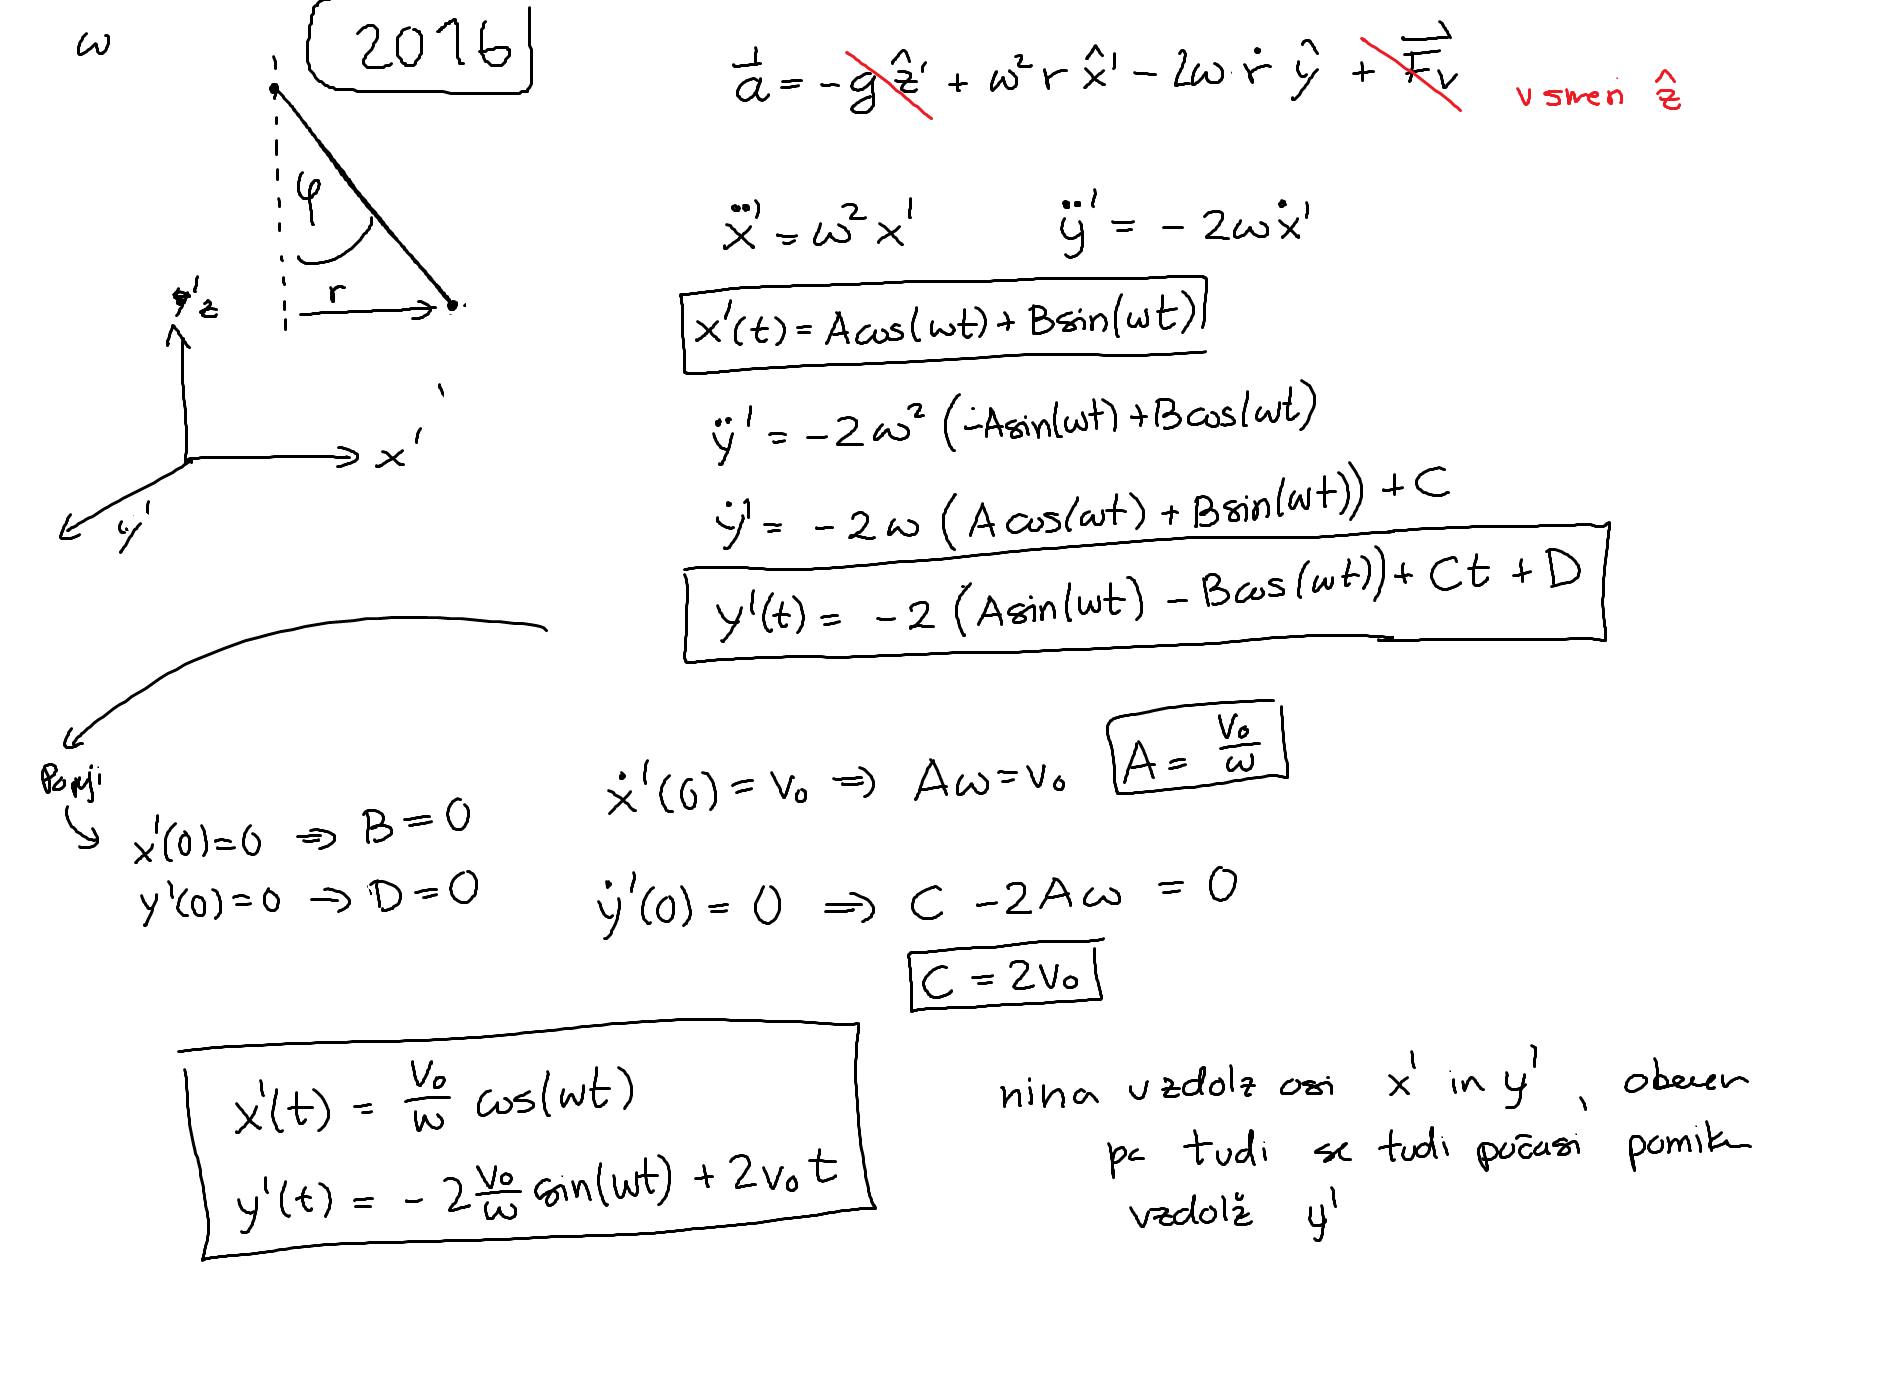 ω
2016
a⃗ = -g ẑ' + ω² r x̂' - 2ω ṙ ŷ + F⃗v
v smeri ẑ
φ
r
z
x'
y'
ẍ' = ω² x'    ÿ' = - 2ω ẋ'
x'(t) = A cos(ωt) + B sin(ωt)
ÿ' = -2ω² (-A sin(ωt) + B cos(ωt)
ẏ' = -2ω (A cos(ωt) + B sin(ωt)) + C
y'(t) = -2 (A sin(ωt) - B cos(ωt)) + Ct + D
x'(0)=0 ⇒ B=0
y'(0)=0 → D=0
ẋ'(0) = v₀ ⇒ Aω = v₀    A = v₀/ω
ẏ'(0) = 0 ⇒ C - 2Aω = 0
C = 2v₀
x'(t) = v₀/ω cos(ωt)
y'(t) = - 2 v₀/ω sin(ωt) + 2v₀t
niha vzdolz osi x' in y',
pa tudi se tudi počasi
vzdolž y'